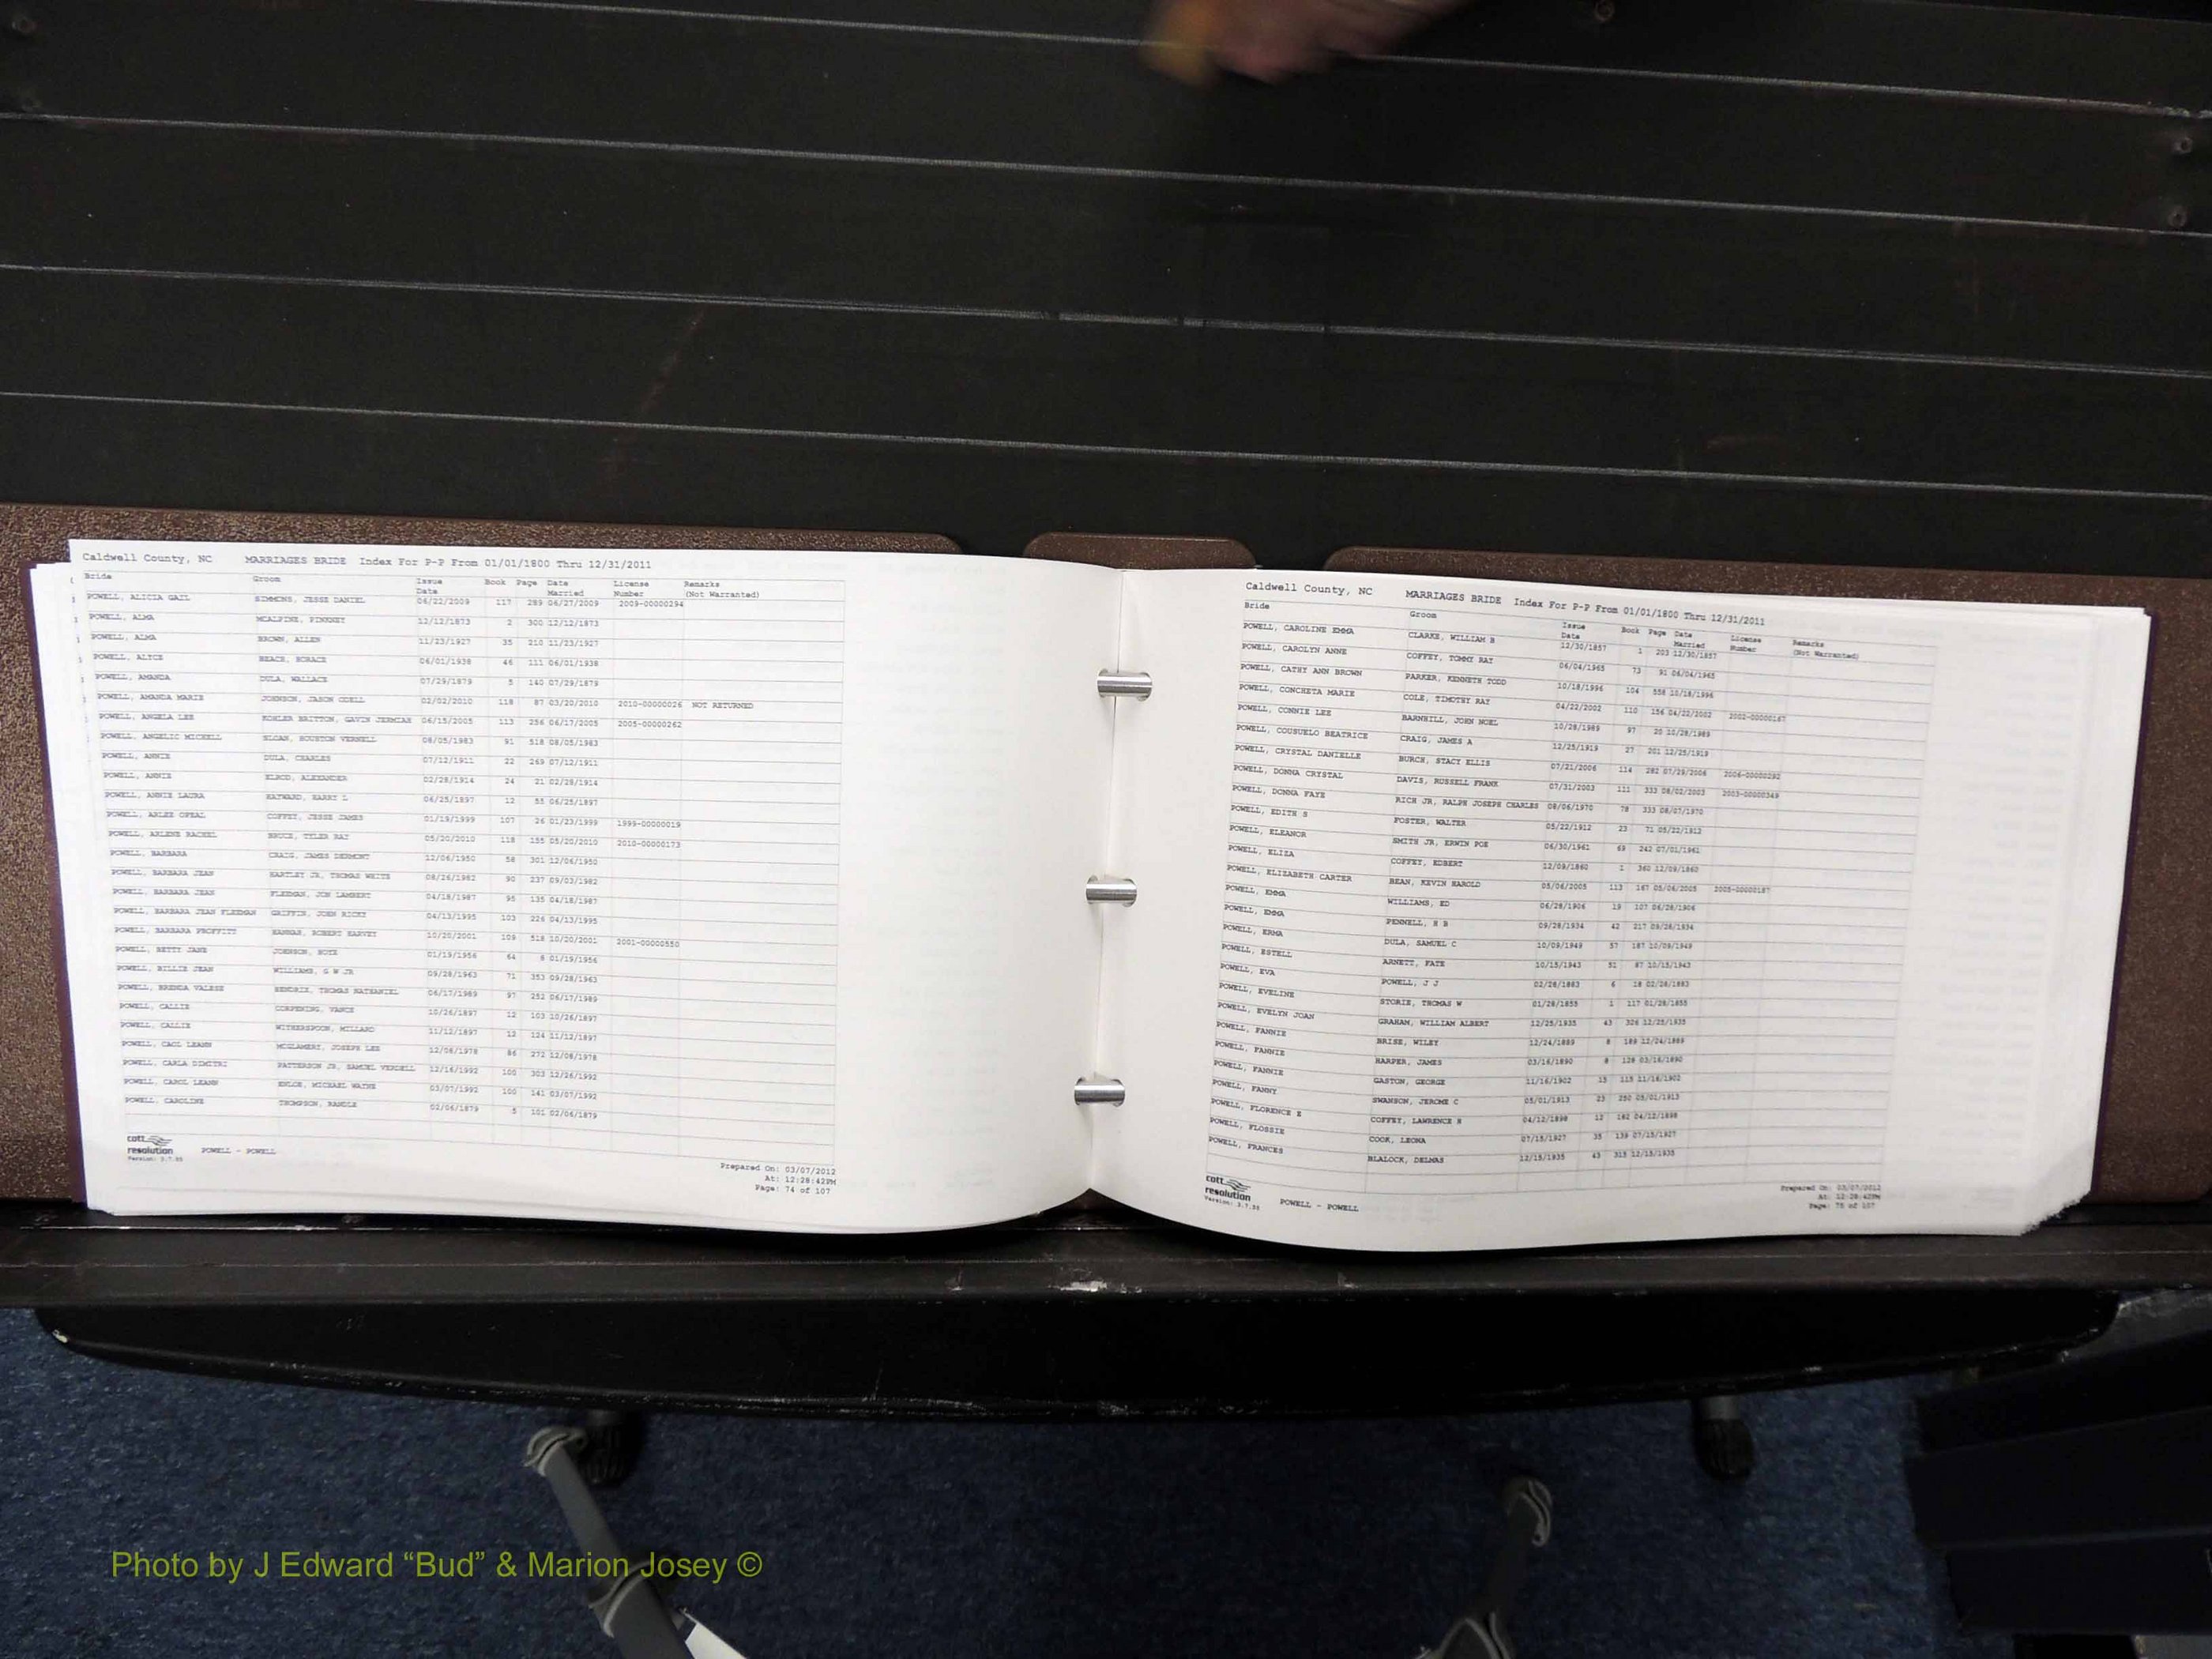 Caldwell County, NC MARRIAGES BRIDE Index For P-P From 01/01/1800 Thru 12/31/2011
Bride Groom Issue Date Book Page Date Married License Number Remarks (Not Warranted)
POWELL, ALICIA GAIL SIMMONS, JESSE DANIEL 06/22/2009 117 289 06/27/2009 2009-00000294
POWELL, ALMA MCALPINE, PINKNEY 12/12/1873 2 300 12/12/1873
POWELL, ALMA BROWN, ALLEN 11/23/1927 35 210 11/23/1927
POWELL, ALYCE BEACH, HORACE 06/01/1938 46 111 06/01/1938
POWELL, AMANDA DULA, WALLACE 07/29/1879 5 140 07/29/1879
POWELL, AMANDA MARIE JOHNSON, JASON ODELL 02/02/2010 118 87 03/20/2010 2010-00000026 NOT RETURNED
POWELL, ANGELA LEE KOHLER BRITTON, GAVIN JERMIAH 06/15/2005 113 256 06/17/2005 2005-00000262
POWELL, ANGELIC MICHELL SLOAN, HOUSTON VERNELL 08/05/1983 91 518 08/05/1983
POWELL, ANNIE DULA, CHARLES 07/12/1911 22 269 07/12/1911
POWELL, ANNIE ELROD, ALEXANDER 02/28/1914 24 21 02/28/1914
POWELL, ANNIE LAURA HAYWARD, HARRY L 06/25/1897 12 55 06/25/1897
POWELL, ARLEE OPEAL COFFEY, JESSE JAMES 01/19/1999 107 26 01/23/1999 1999-00000019
POWELL, ARLENE RACHEL BRUCE, TYLER RAY 05/20/2010 118 155 05/20/2010 2010-00000173
POWELL, BARBARA CRAIG, JAMES DERMONT 12/06/1950 58 301 12/06/1950
POWELL, BARBARA JEAN HARTLEY JR, THOMAS WAITE 08/26/1982 90 237 09/03/1982
POWELL, BARBARA JEAN FLEEMAN, JON LAMBERT 04/18/1987 95 135 04/18/1987
POWELL, BARBARA JEAN FLEEMAN GRIFFIN, JOHN RICKY 04/13/1995 103 226 04/13/1995
POWELL, BARBARA PROFFITT HANNAH, ROBERT HARVEY 10/20/2001 109 518 10/20/2001 2001-00000550
POWELL, BETTY JANE JOHNSON, HOYE 01/19/1956 64 8 01/19/1956
POWELL, BILLIE JEAN WILLIAMS, G W JR 09/28/1963 71 353 09/28/1963
POWELL, BRENDA VALESE HENDRIX, THOMAS NATHANIEL 06/17/1989 97 252 06/17/1989
POWELL, CALLIE CORPENING, VANCE 10/26/1897 12 103 10/26/1897
POWELL, CALLIE WITHERSPOON, MILLARD 11/12/1897 12 124 11/12/1897
POWELL, CAOL LEANN MCGLAMERY, JOSEPH LEE 12/08/1978 86 272 12/08/1978
POWELL, CARLA DIMITRI PATTERSON JR, SAMUEL VERDELL 12/16/1992 100 303 12/26/1992
POWELL, CAROL LEANN ENLOE, MICHAEL WAYNE 03/07/1992 100 141 03/07/1992
POWELL, CAROLINE THOMPSON, RANDLE 02/06/1879 5 101 02/06/1879
cott resolution
POWELL - POWELL
Prepared On: 03/07/2012
At: 12:28:42PM
Page: 74 of 107
Caldwell County, NC MARRIAGES BRIDE Index For P-P From 01/01/1800 Thru 12/31/2011
Bride Groom Issue Date Book Page Date Married License Number Remarks (Not Warranted)
POWELL, CAROLINE EMMA CLARKE, WILLIAM B 12/30/1857 1 203 12/30/1857
POWELL, CAROLYN ANNE COFFEY, TOMMY RAY 06/04/1965 73 91 06/04/1965
POWELL, CATHY ANN BROWN PARKER, KENNETH TODD 10/18/1996 104 558 10/18/1996
POWELL, CONCHETA MARIE COLE, TIMOTHY RAY 04/22/2002 110 156 04/22/2002 2002-00000187
POWELL, CONNIE LEE BARNHILL, JOHN NOEL 10/28/1989 97 20 10/28/1989
POWELL, COUSUELO BEATRICE CRAIG, JAMES A 12/25/1919 27 201 12/25/1919
POWELL, CRYSTAL DANIELLE BURCH, STACY ELLIS 07/21/2006 114 282 07/29/2006 2006-00000292
POWELL, DONNA CRYSTAL DAVIS, RUSSELL FRANK 07/31/2003 111 333 08/02/2003 2003-00000349
POWELL, DONNA FAYE RICH JR, RALPH JOSEPH CHARLES 08/06/1970 78 333 08/07/1970
POWELL, EDITH S FOSTER, WALTER 05/22/1912 23 71 05/22/1912
POWELL, ELEANOR SMITH JR, ERWIN POE 06/30/1961 69 242 07/01/1961
POWELL, ELIZA COFFEY, EDBERT 12/09/1860 1 360 12/09/1860
POWELL, ELIZABETH CARTER BEAN, KEVIN HAROLD 05/06/2005 113 167 05/06/2005 2005-00000187
POWELL, EMMA WILLIAMS, ED 06/28/1906 19 107 06/28/1906
POWELL, EMMA PENNELL, H B 09/28/1934 42 217 09/28/1934
POWELL, ERMA DULA, SAMUEL C 10/09/1949 57 187 10/09/1949
POWELL, ESTELL ARNETT, FATE 10/15/1943 51 87 10/15/1943
POWELL, EVA POWELL, J J 02/28/1883 6 18 02/28/1883
POWELL, EVELINE STORIE, THOMAS W 01/28/1855 1 117 01/28/1855
POWELL, EVELYN JOAN GRAHAM, WILLIAM ALBERT 12/25/1935 43 326 12/25/1935
POWELL, FANNIE BRISE, WILEY 12/24/1889 8 189 12/24/1889
POWELL, FANNIE HARPER, JAMES 03/16/1890 8 128 03/16/1890
POWELL, FANNIE GASTON, GEORGE 11/16/1902 15 115 11/16/1902
POWELL, FANNY SWANSON, JEROME C 05/01/1913 23 250 05/01/1913
POWELL, FLORENCE E COFFEY, LAWRENCE H 04/12/1898 12 182 04/12/1898
POWELL, FLOSSIE COOK, LEONA 07/15/1927 35 139 07/15/1927
POWELL, FRANCES BLALOCK, DELMAS 12/15/1935 43 315 12/15/1935
cott resolution
POWELL - POWELL
Prepared On: 03/07/2012
At: 12:28:42PM
Page: 75 of 107
Photo by J Edward “Bud” & Marion Josey ©